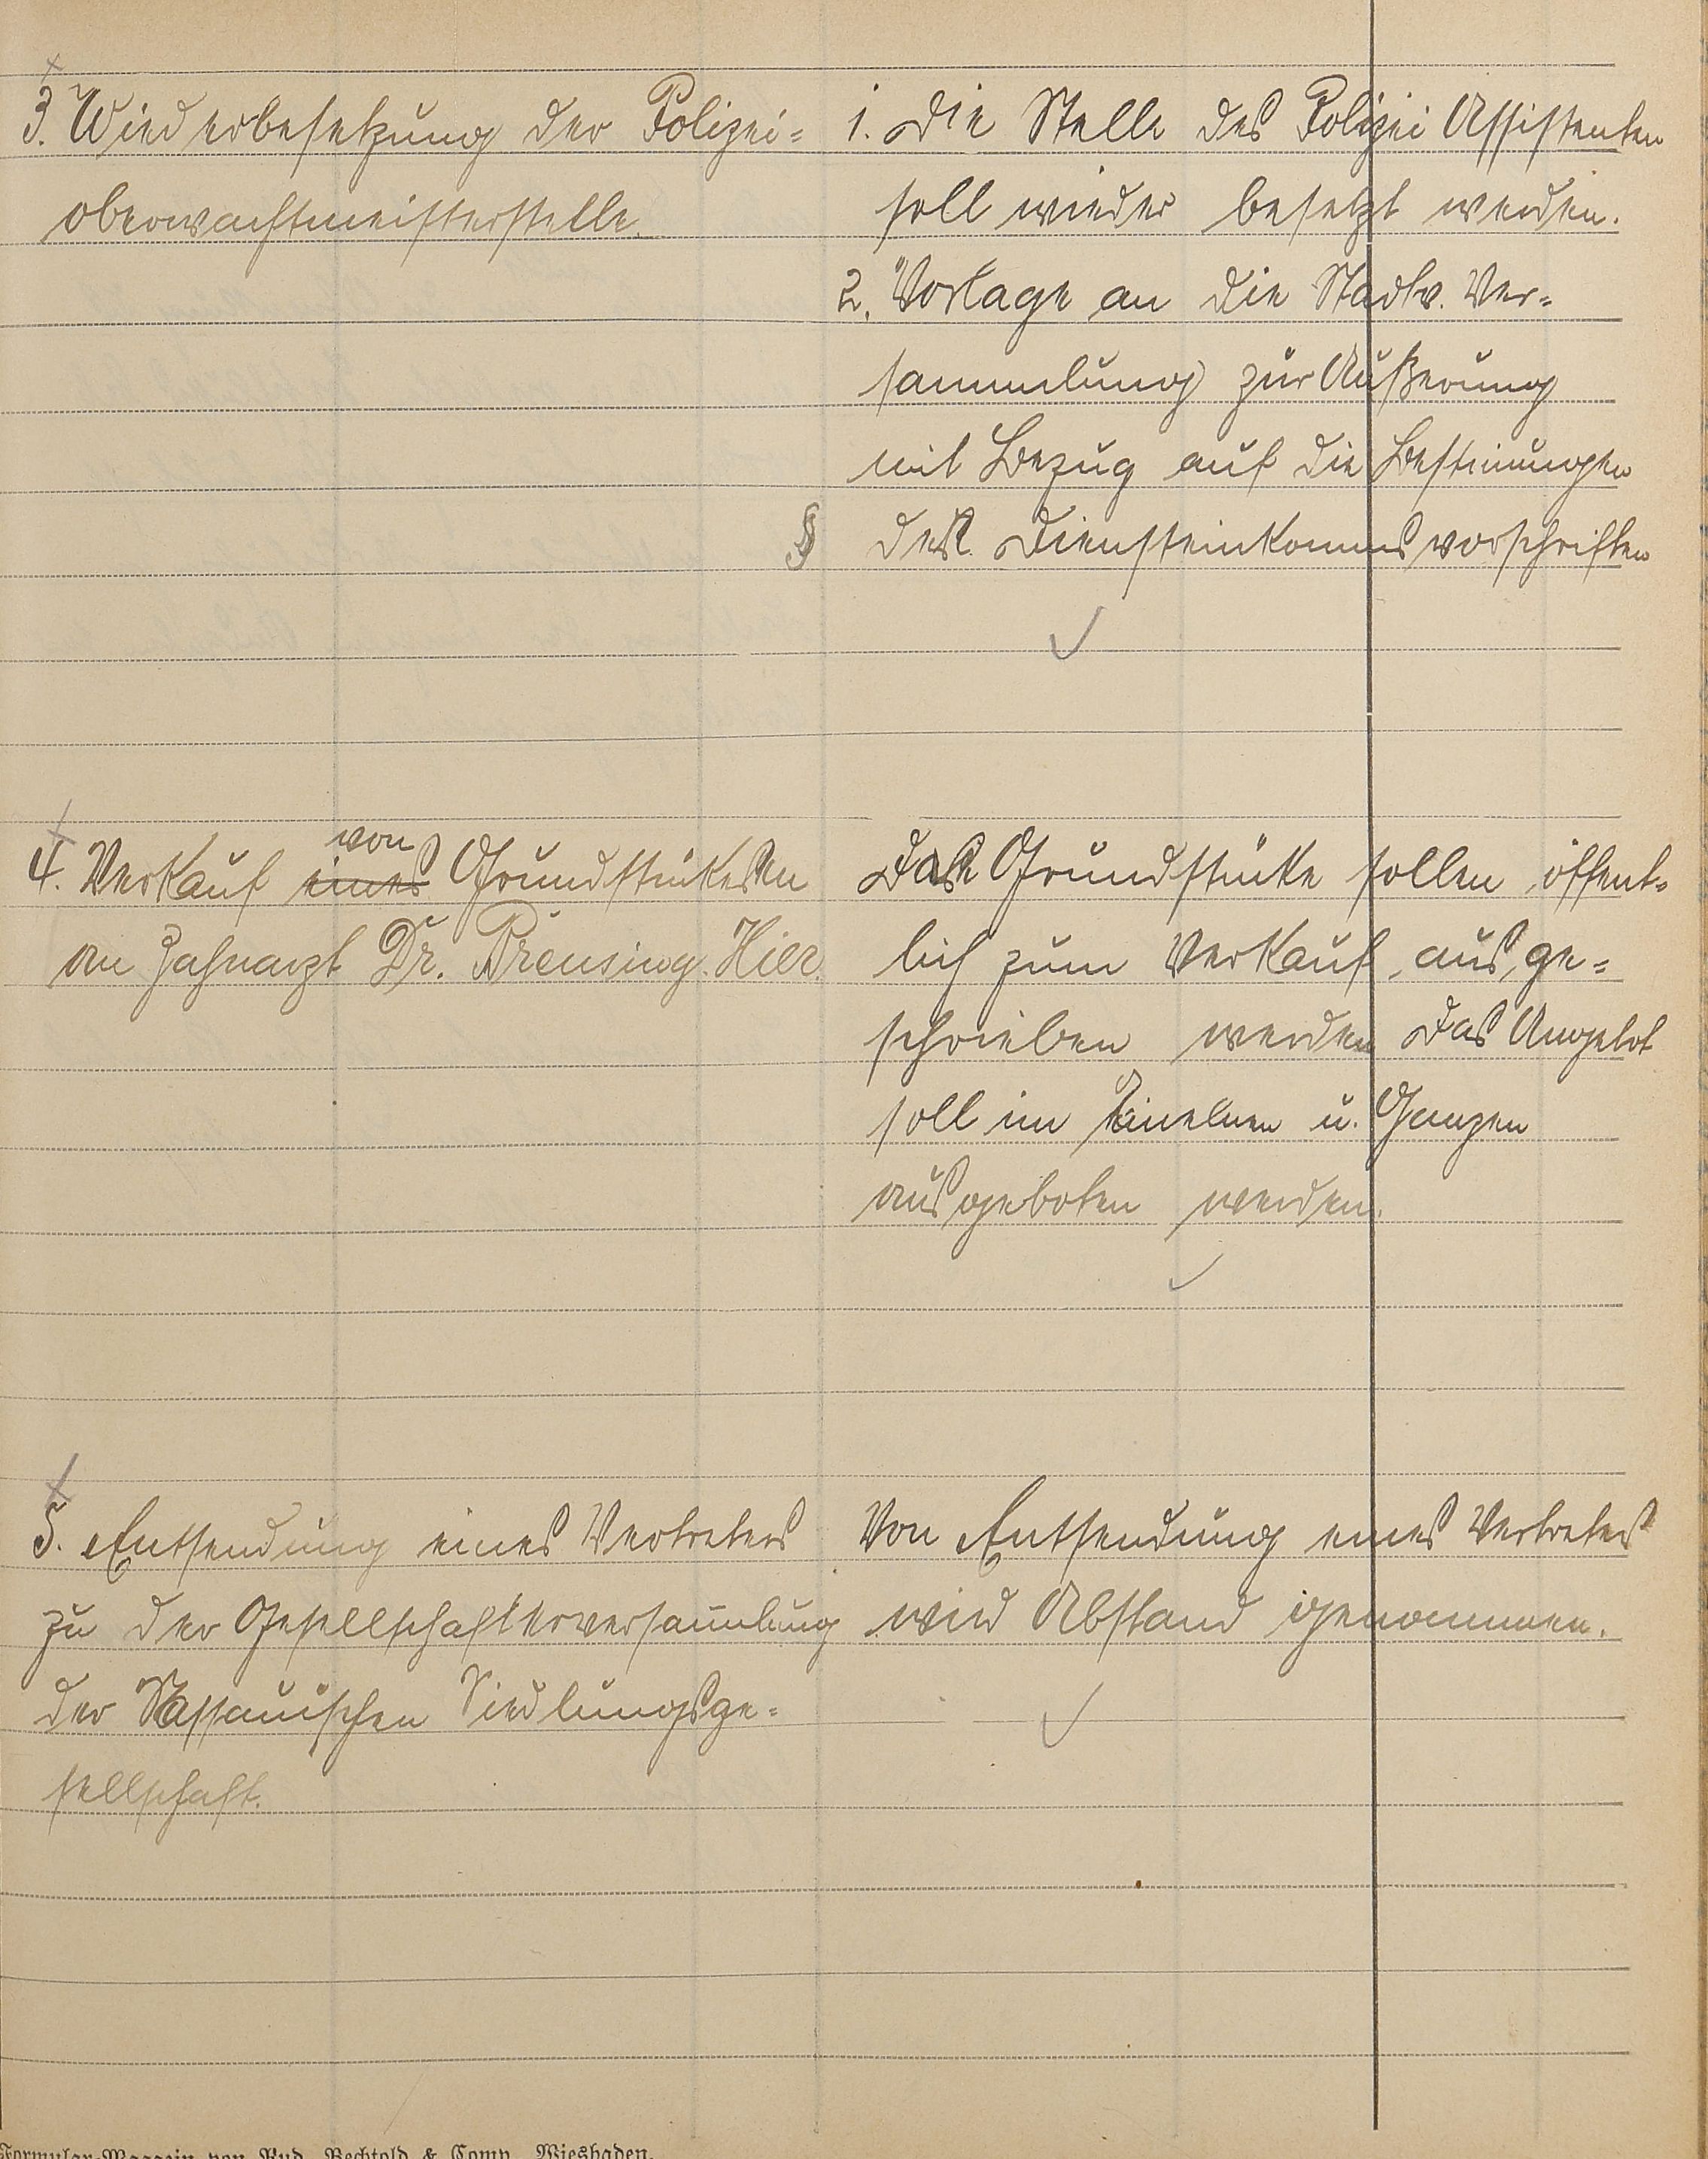 3. Wiederbesetzung der Polizei=
oberwachtmeisterstelle.
1. Die Stelle des Polizei Assistenten
soll wieder besetzt werden.
2. Vorlage an die Stadtv. Ver=
sammlung zur Äußerung
mit Bezug auf die Bestimungen
§ der Diensteinkommsvorschriften
4. Verkauf eines von Grundstücken
an Zahnarzt Dr. Preusing. Hier.
Die Grundstücke sollen öffent=
lich zum Verkauf ausge=
schrieben werden Das Angebot
soll im Einelnen u. Ganzen
ausgeboten werden.
5. Entsendung eines Vertreters
zu der Gesellschafterversam̄lung
der Nassauischen Siedlungsge=
sellschaft.
Von Entsendung eines Vertreters
wird Abstand genommen.
Formular-Magazin von Rud. Bechtold & Comp. Wiesbaden.